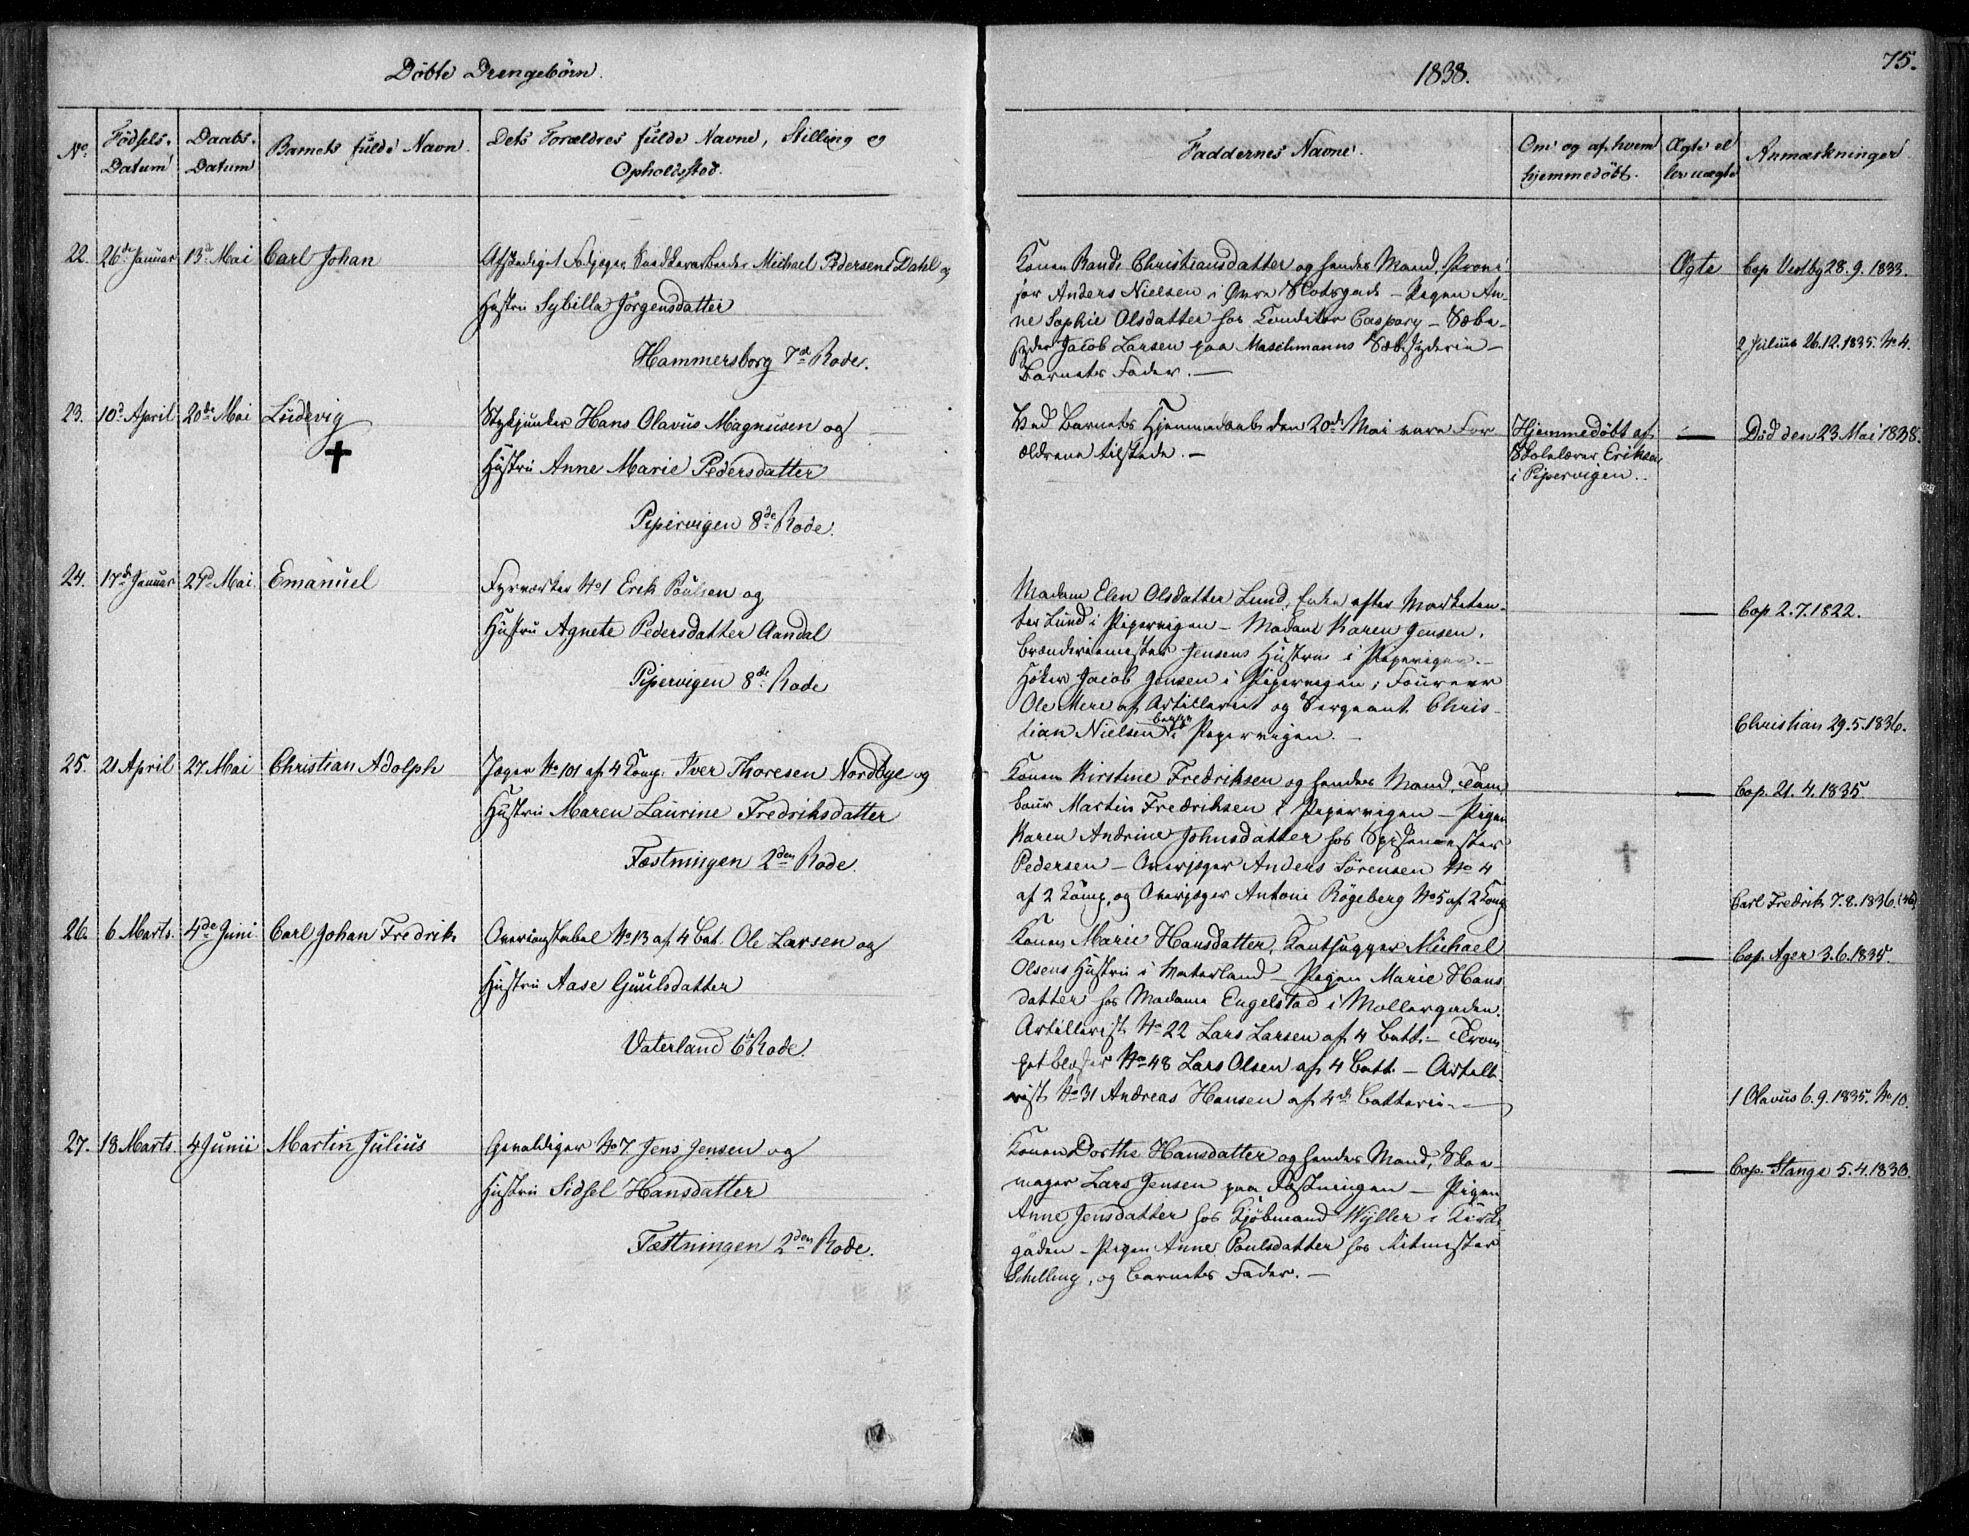 Döbte Drengebörn.
1838.
75.
No.
Födsels-Datum
Daabs-Datum
Barnets fulde Navn.
Dets Forældres fulde Navne, Stilling og Opholdssted.
Faddernes Navne.
Om og af hvem hjemmedöbt.
Ægte el ler uægte
Anmærkninger
22. 26de Januar 13d Mai Carl Johan
Afskediget Snedkerarbeider Michael Pedersen Dahl og
Hustru Sybilla Jörgensdatter
Hammersborg 7d Rode.
Konen Christiansdatter og hendes Mand,
Anders Nielsen i Övre Slotsgade – Pigen An-
ne Sophie Olsdatter hos Conditor Caspary – Sæbe-
syder Jacob Larsen paa Maschmanns Sæbesyderie –
Barnets Fader. –
Ægte
Cop Vestby 28. 9. 1833.
2 Julius 26.12.1835. No 4.
23. 10d April 20de Mai Ludevig
Stykjunker Hans Olavus Magnusen og
Hustru Anne Marie Pedersdatter
Pipervigen 8de Rode.
Ved Barnets Hjemmedaab den 20de Mai vare For-
ældrene tilstede. –
Hjemmedöbt af
Skolelærer Eriksen
i Pipervigen.
Död den 23 Mai 1838.
24. 17de Januar 27d Mai Emanuel
Fyrværker No 1 Erik Poulsen og
Hustru Agnete Pedersdatter Aandal
Pipervigen 8de Rode
Madam Elen Olsdatter Lund, Enke efter Marketen-
ter Lund i Pipervigen – Madam Karen Jensen,
Brænderiemester Jensens Hustru i Pipervigen. –
Höker Jacob Jensen i Pipervigen, Foureer
Ole Mere af Artilleriet og Sergeant Chris-
tian Nielsen i Pipervigen. –
Cop 2.7.1822.
Christian 29.5.1836.
25. 21 April 27 Mai Christian Adolph
Jæger No 101 af 4 Komp. Iver Thoresen Nordbye og
Hustru Maren Laurine Fredriksdatter
Fæstningen 2den Rode.
Konen Kirstine Fredriksen og hendes Mand, Tam-
bour Martin Fredriksen i Pipervigen – Pigen
Karen Andrine Johnsdatter hos Spisemester
Pedersen – Overjæger Anders Sörensen No 4
af 2 Komp. og Overjæger Antoni Rögeberg No 5 af 2 Komp.
Cop. 21. 4. 1835.
Carl Fredrik 7.8.1836.
26. 6 Marts. 4de Juni Carl Johan Fredrik
Overconstabel No 13 af 4 Bat. Ole Larsen og
Hustru Aase Guulsdatter
Vaterland 6te Rode.
Konen Marie Hansdatter, Michael
Olsens Hustru i Vaterland – Pigen Marie Hans-
datter hos Madame Engelstad i Mollergaden.
Artillerist No 22 Lars Larsen af 4 Batt. – Trom-
petblæser No 48 Lars Olsen af 4 Batt – Artille-
rist No 31 Andreas Hansen af 4de Batterie. –
Cop. Ager 3.6.1835.
1 Olavus 6. 9. 1835. No 10.
27. 18 Marts. 4 Junii Martin Julius
Gevaldiger No 7 Jens Jensen og
Hustru Sidsel Hansdatter
Fæstningen 2den Rode.
Konen Dorthe Hansdatter og hendes Mand, Skoe-
mager Lars Jensen paa Fæstningen – Pigen
Anne Jensdatter hos Kjöbmand Wyller i Kirke-
gaden – Pigen Anne Poulsdatter hos Ritmester
Schelling, og Barnets Fader. –
Cop. Stange 5.4.1830.